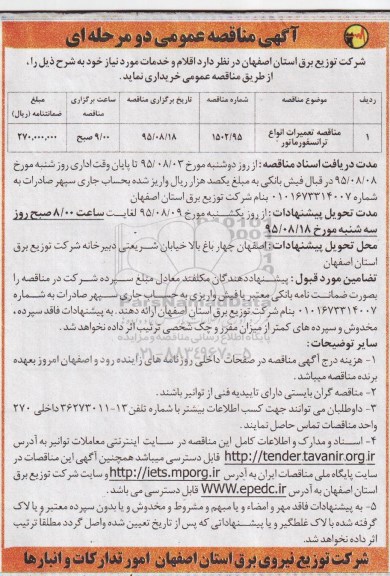 آگهی مناقصه عمومی دو مرحله ای
شرکت توزیع برق استان اصفهان در نظر دارد اقلام و خدمات مورد نیاز خود به شرح ذیل را،
از طریق مناقصه عمومی خریداری نماید.
ردیف موضوع مناقصه شماره مناقصه تاریخ برگزاری مناقصه ساعت برگزاری مناقصه مبلغ ضمانتنامه (ریال)
۱ مناقصه تعمیرات انواع ترانسفورماتور ۱۵۰۲/۹۵ ۹۵/۰۸/۱۸ ۹/۰۰ صبح ۲۷۰,۰۰۰,۰۰۰
مدت دریافت اسناد مناقصه: از روز دوشنبه مورخ ۹۵/۰۸/۰۳ تا پایان وقت اداری روز شنبه مورخ
۹۵/۰۸/۰۸ در قبال فیش بانکی به مبلغ یکصد هزار ریال واریز شده بحساب جاری سپهر صادرات به
شماره ۰۱۰۱۶۷۳۳۱۴۰۰۷ بنام شرکت توزیع برق استان اصفهان
مدت تحویل پیشنهادات: از روز یکشنبه مورخ ۹۵/۰۸/۰۹ لغایت ساعت ۸/۰۰ صبح روز
سه شنبه مورخ ۹۵/۰۸/۱۸
محل تحویل پیشنهادات: اصفهان چهار باغ بالا خیابان شریعتی دبیرخانه شرکت توزیع برق
استان اصفهان
تضامین مورد قبول: پیشنهاددهندگان مکلفند معادل مبلغ سپرده شرکت در مناقصه را
بصورت ضمانت نامه بانکی معتبر یا فیش واریزی به حساب جاری سپهر صادرات به شماره
۰۱۰۱۶۷۳۳۱۴۰۰۷ بنام شرکت توزیع برق استان اصفهان ارائه دهند. به پیشنهادات فاقد سپرده،
مخدوش و سپرده های کمتر از میزان مقرر و چک شخصی ترتیب اثر داده نخواهد شد.
سایر توضیحات:
۱- هزینه درج آگهی مناقصه در صفحات داخلی روزنامه های زاینده رود و اصفهان امروز بعهده
برنده مناقصه میباشد.
۲- مناقصه گران بایستی دارای تاییدیه فنی از توانیر باشند.
۳- داوطلبان می توانند جهت کسب اطلاعات بیشتر با شماره تلفن ۱۳-۳۶۲۷۳۰۱۱ داخلی ۲۷۰
واحد مناقصات تماس حاصل نمایند.
۴- اسناد و مدارک و اطلاعات کامل این مناقصه در سایت اینترنتی معاملات توانیر به آدرس
http://tender.tavanir.org.ir قابل دسترسی میباشد همچنین آگهی این مناقصات در
سایت پایگاه ملی مناقصات ایران به آدرس http://iets.mporg.ir و سایت شرکت توزیع برق
استان اصفهان به آدرس www.epedc.ir قابل دسترسی می باشد.
۵- به پیشنهادات فاقد مهر و امضاء و یا مبهم و مشروط و مخدوش و یا بدون سپرده معتبر و یا لاک
گرفته شده با لاک غلطگیر و یا پیشنهاداتی که پس از تاریخ تعیین شده واصل گردد مطلقا ترتیب
اثر داده نخواهد شد.
شرکت توزیع نیروی برق استان اصفهان امور تدارکات و انبارها